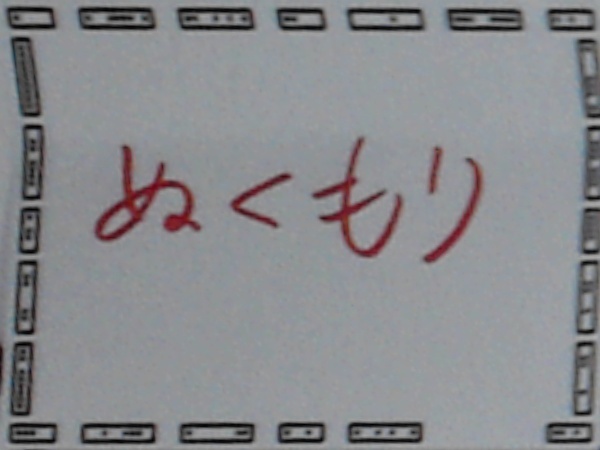 ぬくもり